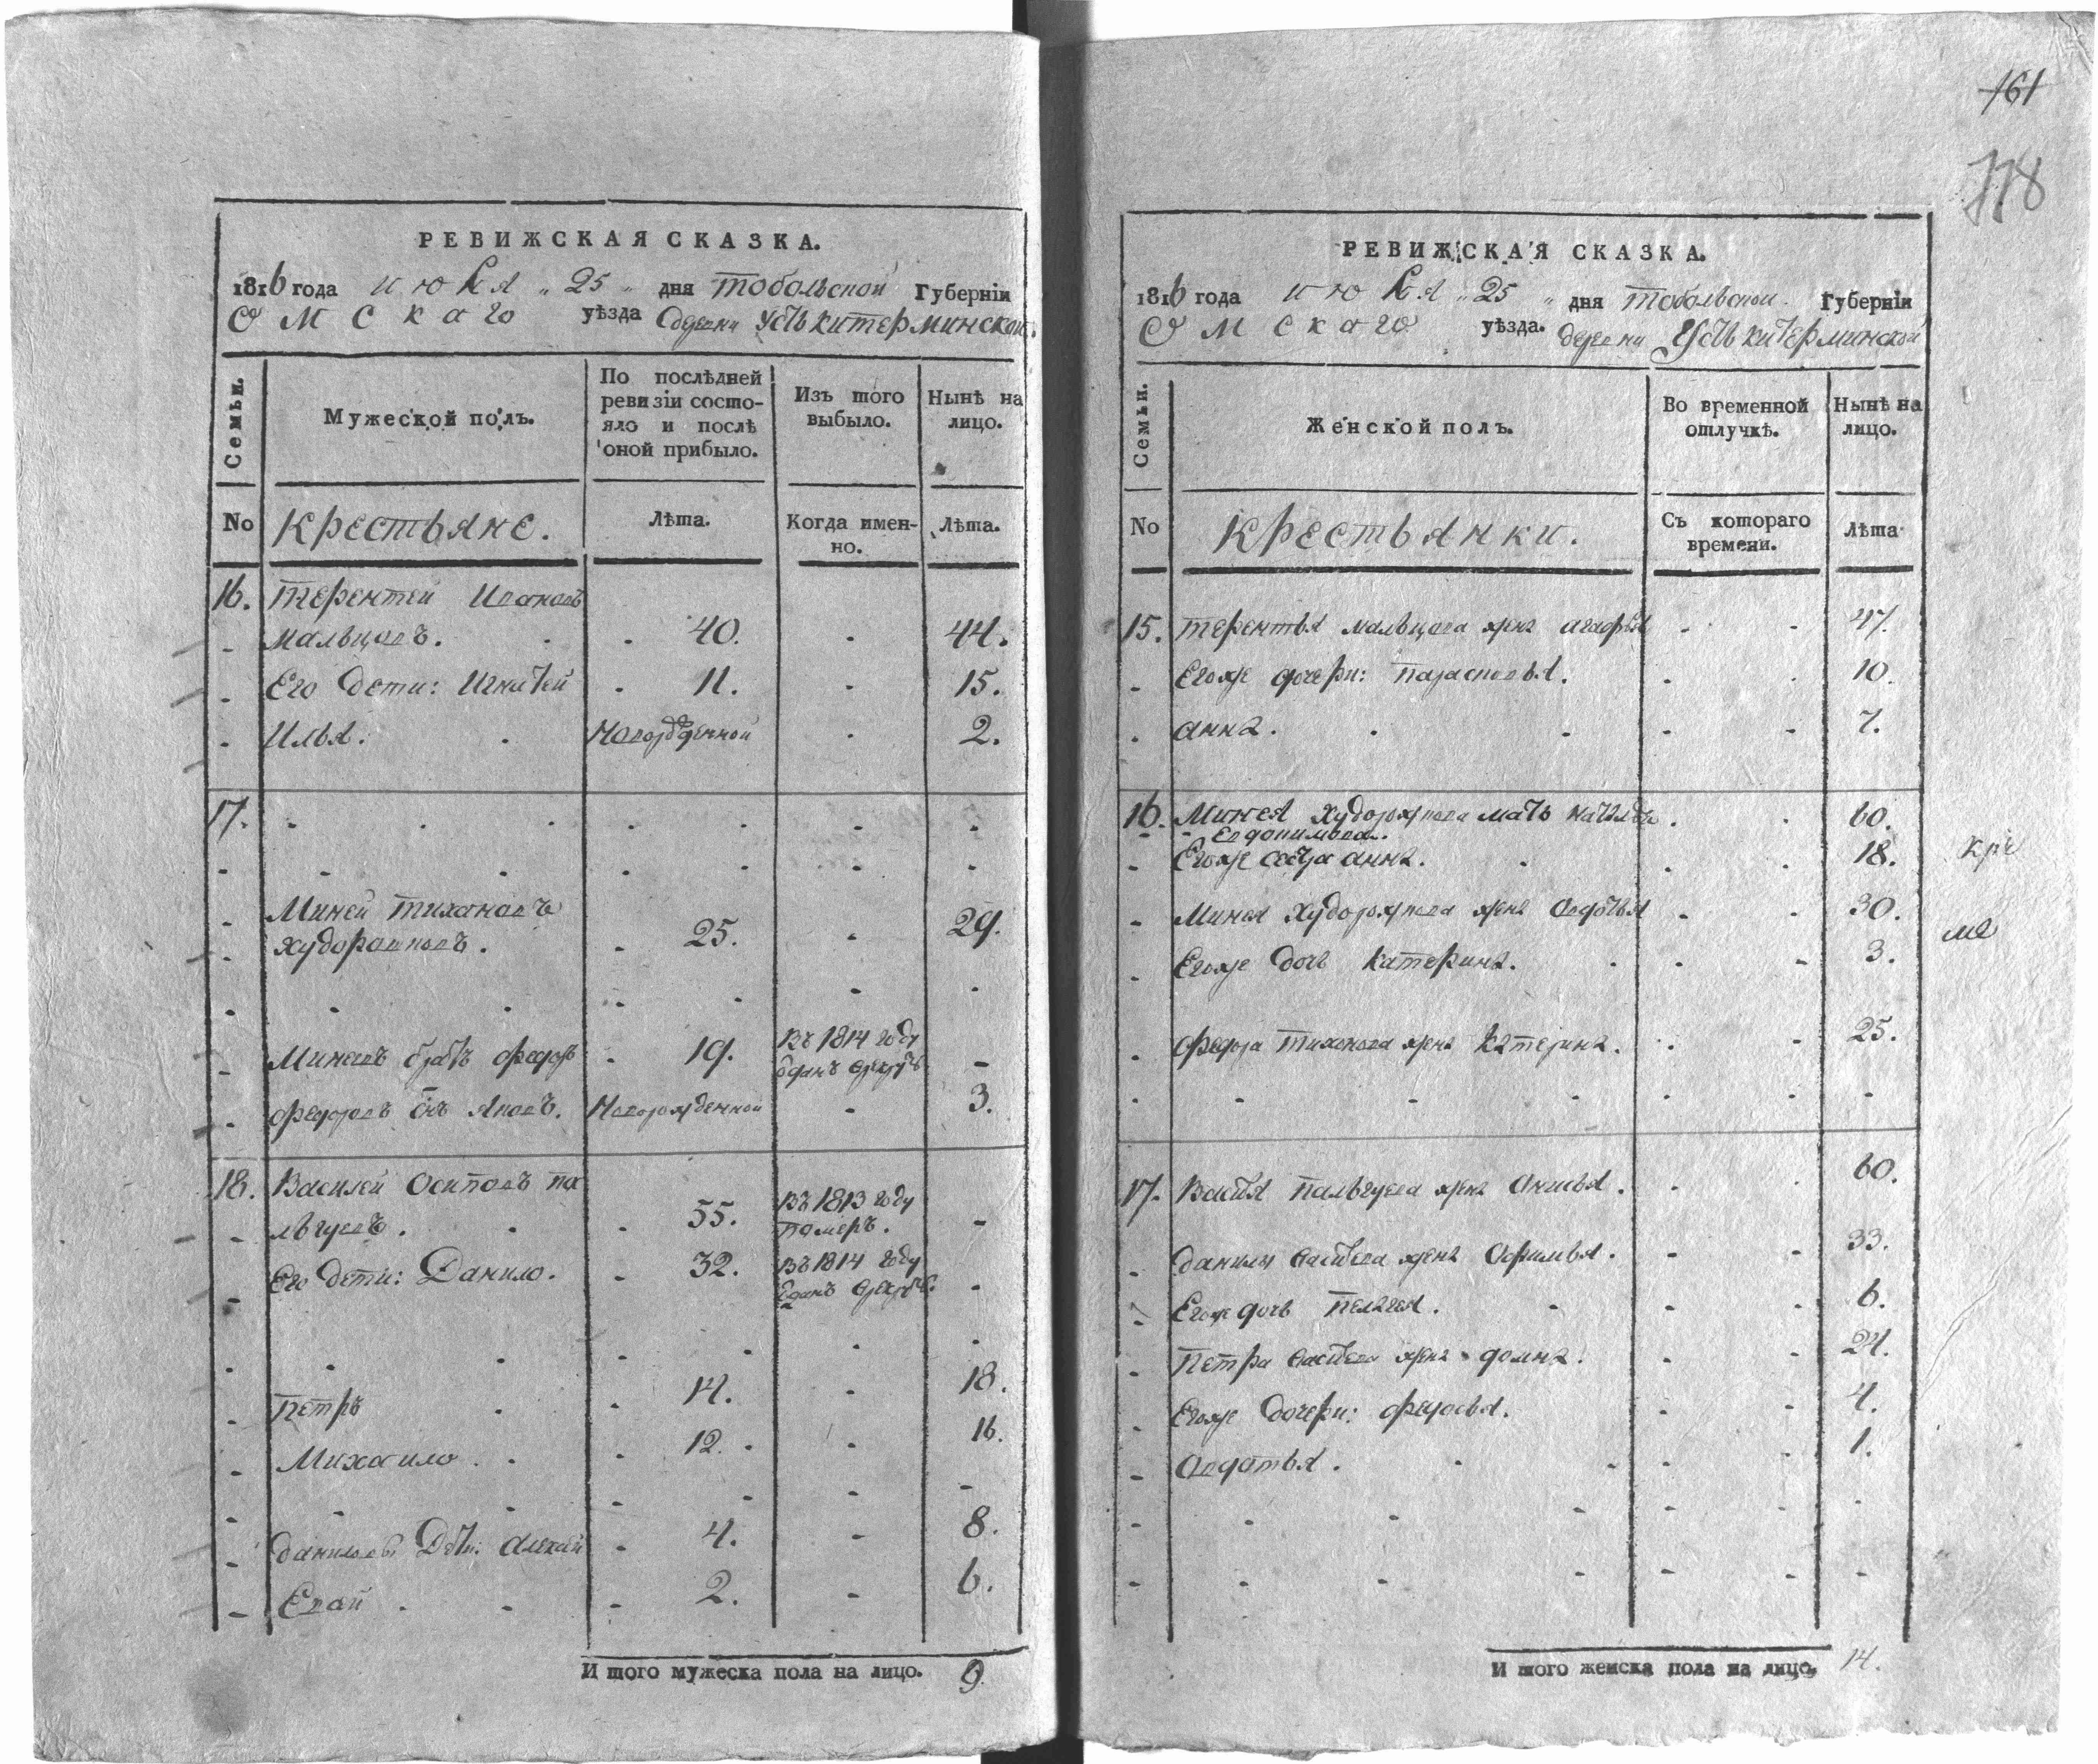 РЕВИЖСКАЯ СКАЗКА.
1816 года июля „ 25 „ дня Тобольской Губерніи
Омскаго уѣзда деревни Усть китерминской.
Семьи.
Мужеской полъ.
По послѣдней ревизіи состояло и послѣ оной прибыло.
Изъ того выбыло.
Нынѣ на лицо.
No
Крестьяне.
Лѣта.
Когда именно.
Лѣта.
16. Терентей Ивановъ
Мальцовъ. 40. 44.
Его дети: Игнатей 11. 15.
Илья. Новорожденной 2.
17.
Миней Тихановъ
Худоражковъ. 25. 29.
Минеевъ братъ Федоръ 19. Въ 1814 году
отданъ врекруты
Федоровъ сынъ Яковъ. Новорожденной 3.
18. Василей Осиповъ па
льгуевъ. 55. Въ 1813 году
померъ.
Его дети: Данило. 32. Въ 1814 году
отданъ врекруты.
Петръ 14. 18.
Михаило. 12. 16.
даниловы Дети: Алексей 4. 8.
2. 6.
Итого мужеска пола на лицо. 9.
161
178
РЕВИЖСКАЯ СКАЗКА.
1816 года июля „ 25 „ дня Тобольской Губерніи
Омскаго уѣзда. деревни Усть китерминской
Семьи.
Женской полъ.
Во временной отлучкѣ.
Нынѣ на лицо.
No
Крестьянки.
Съ котораго времени.
Лѣта
15. Терентья мальцова жена агафья 47.
Егоже дочери: Парасковья. 10.
анна. 7.
16. Минея Худоражкова мать Наталья 60.
Евдокимова.
Егоже сестра анна. 18.
Минея Худоражкова жена Авдотья 30.
Егоже дочь Катерина. 3.
Федора Тихонова жена Катерина. 25.
17. Василья Пальгуева жена Анисья. 60.
Данилы васильева жена Афимья. 33.
Егоже дочь Пелагея. 6.
Петра васильева жена домна. 24.
Егоже дочери: Федосья. 4.
Авдотья. 1.
Итого женска пола на лицо. 14.